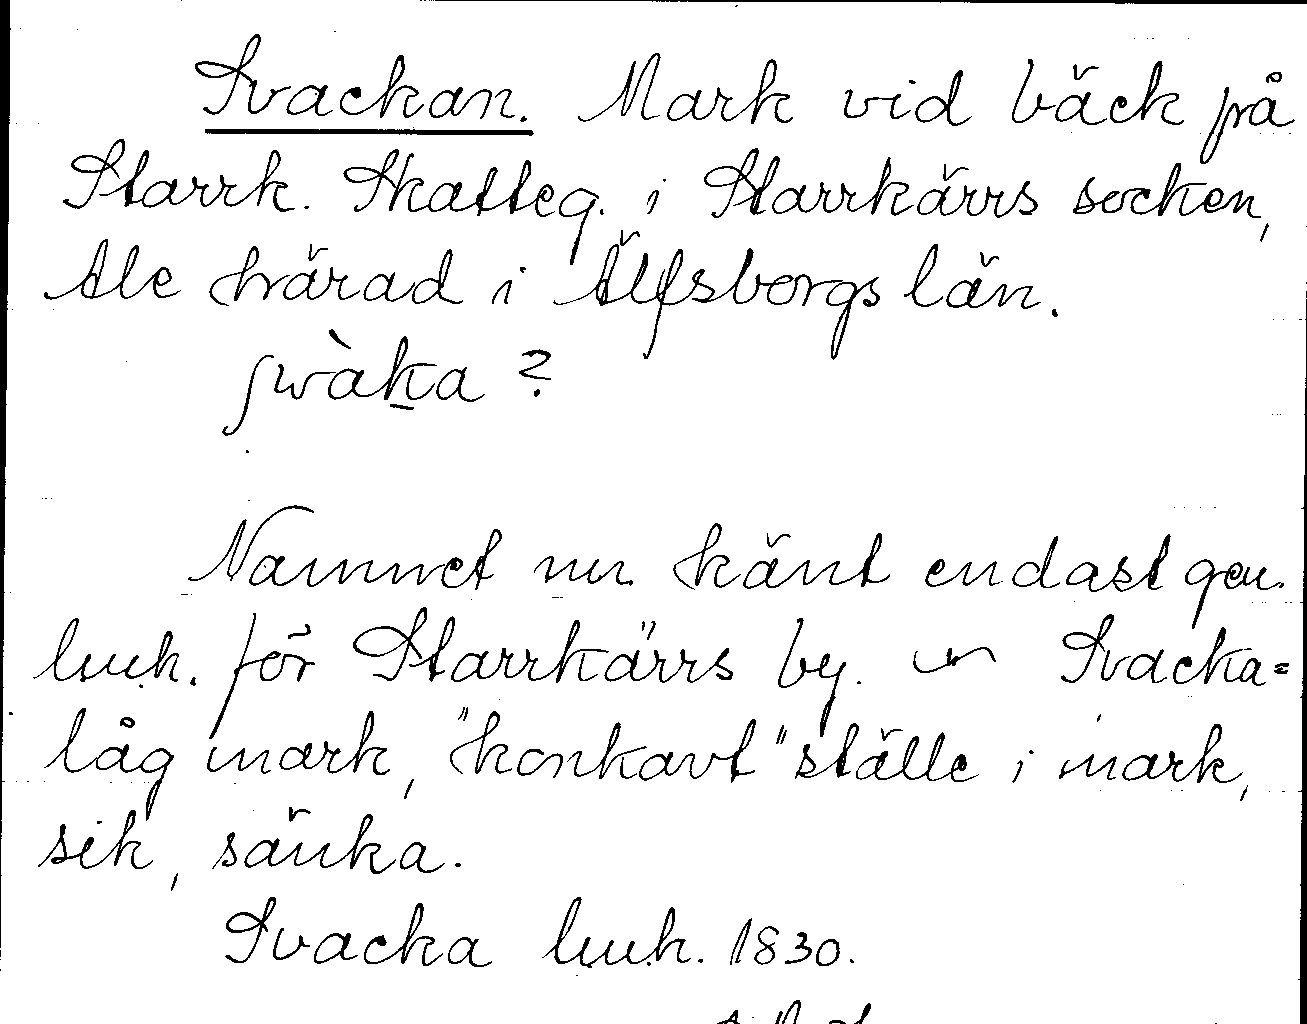 Svackan. Mark vid bäck på
Starrk. Skatteg. i Starrkärrs socken,
Ale härad i Älfsborgs län.
swàka ?
Namnet nu känt endast gen.
lmh. för Starrkärrs by. ~ Svacka=
låg mark, "konkavt" ställe i mark,
sik, sänka.
Svacka lmh. 1830.